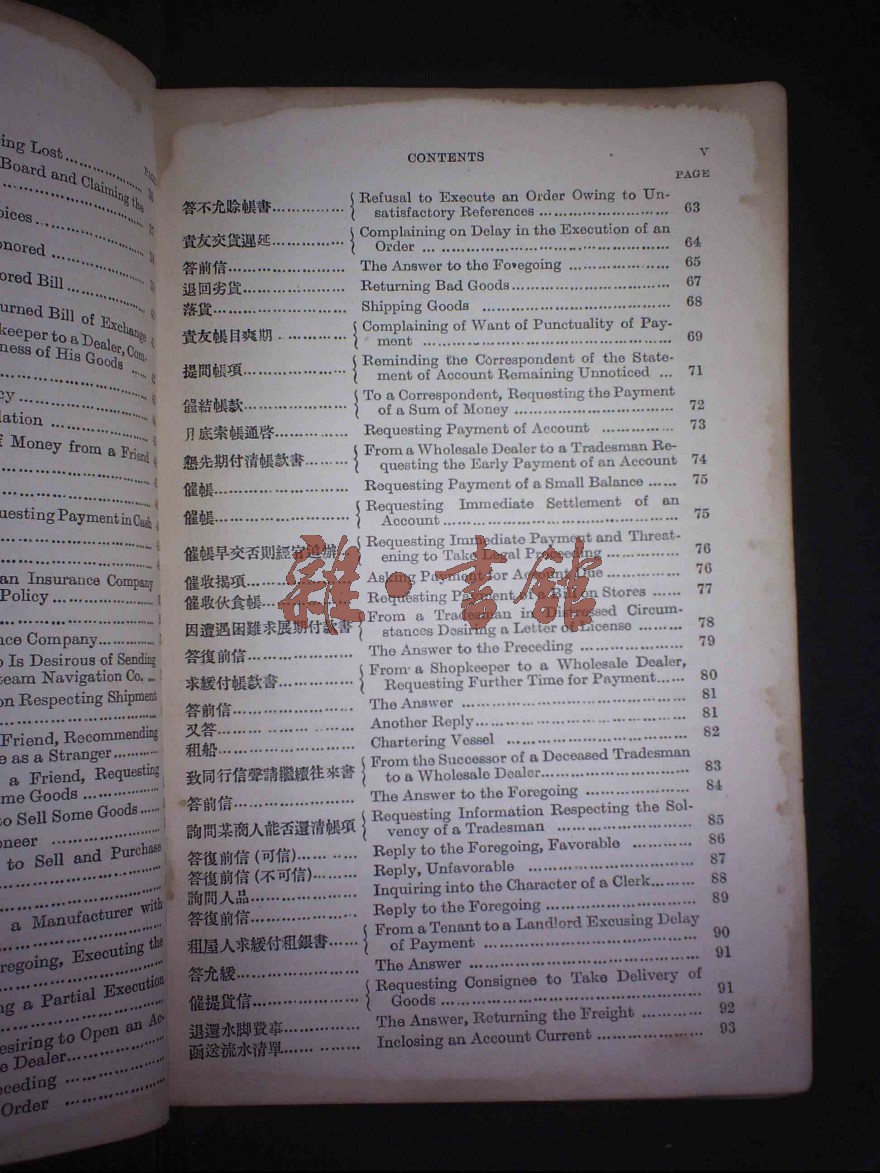 ing Lost
Board and Claiming the
oices
onored
ored Bill
urned Bill of Exchange
keeper to a Dealer, Com-
ness of His Goods
cy
lation
f Money from a Friend
questing Payment in Cash
an Insurance Company
Policy
ance Company
o Is Desirous of Sending
team Navigation Co.
on Respecting Shipment
Friend, Recommending
e as a Stranger
a Friend, Requesting
me Goods
to Sell Some Goods
oneer
to Sell and Purchase
a Manufacturer with
regoing, Executing the
ng a Partial Execution
esiring to Open an Ac-
e Dealer
eceding
Order
CONTENTS V
PAGE
答不允賒帳書 Refusal to Execute an Order Owing to Un-
satisfactory References 63
責友交貨遲延 Complaining on Delay in the Execution of an
Order 64
答前信 The Answer to the Foregoing 65
退回劣貨 Returning Bad Goods 67
落貨 Shipping Goods 68
責友帳目爽期 Complaining of Want of Punctuality of Pay-
ment 69
提問帳項 Reminding the Correspondent of the State-
ment of Account Remaining Unnoticed 71
催結帳款 To a Correspondent, Requesting the Payment
of a Sum of Money 72
月底索帳通啓 Requesting Payment of Account 73
懇先期付清帳款書 From a Wholesale Dealer to a Tradesman Re-
questing the Early Payment of an Account 74
催帳 Requesting Payment of a Small Balance 75
催帳 Requesting Immediate Settlement of an
Account 75
催帳早交否則經官追辦 Requesting Immediate Payment and Threat-
ening to Take Legal Proceeding 76
催收揭項 Asking Payment for Account Due 76
催收伙食帳 Requesting Payment of a Bill on Stores 77
因遭遇困難求展期付款書 From a Tradesman in Distressed Circum-
stances Desiring a Letter of License 78
答復前信 The Answer to the Preceding 79
求緩付帳款書 From a Shopkeeper to a Wholesale Dealer,
Requesting Further Time for Payment 80
答前信 The Answer 81
又答 Another Reply 81
租船 Chartering Vessel 82
致同行信聲請繼續往來書 From the Successor of a Deceased Tradesman
to a Wholesale Dealer 83
答前信 The Answer to the Foregoing 84
詢問某商人能否還清帳項 Requesting Information Respecting the Sol-
vency of a Tradesman 85
答復前信(可信) Reply to the Foregoing, Favorable 86
答復前信(不可信) Reply, Unfavorable 87
詢問人品 Inquiring into the Character of a Clerk 88
答復前信 Reply to the Foregoing 89
租屋人求緩付租銀書 From a Tenant to a Landlord Excusing Delay
of Payment 90
答允緩 The Answer 91
催提貨信 Requesting Consignee to Take Delivery of
Goods 91
退還水脚費事 The Answer, Returning the Freight 92
函送流水清單 Inclosing an Account Current 93
雜·書館